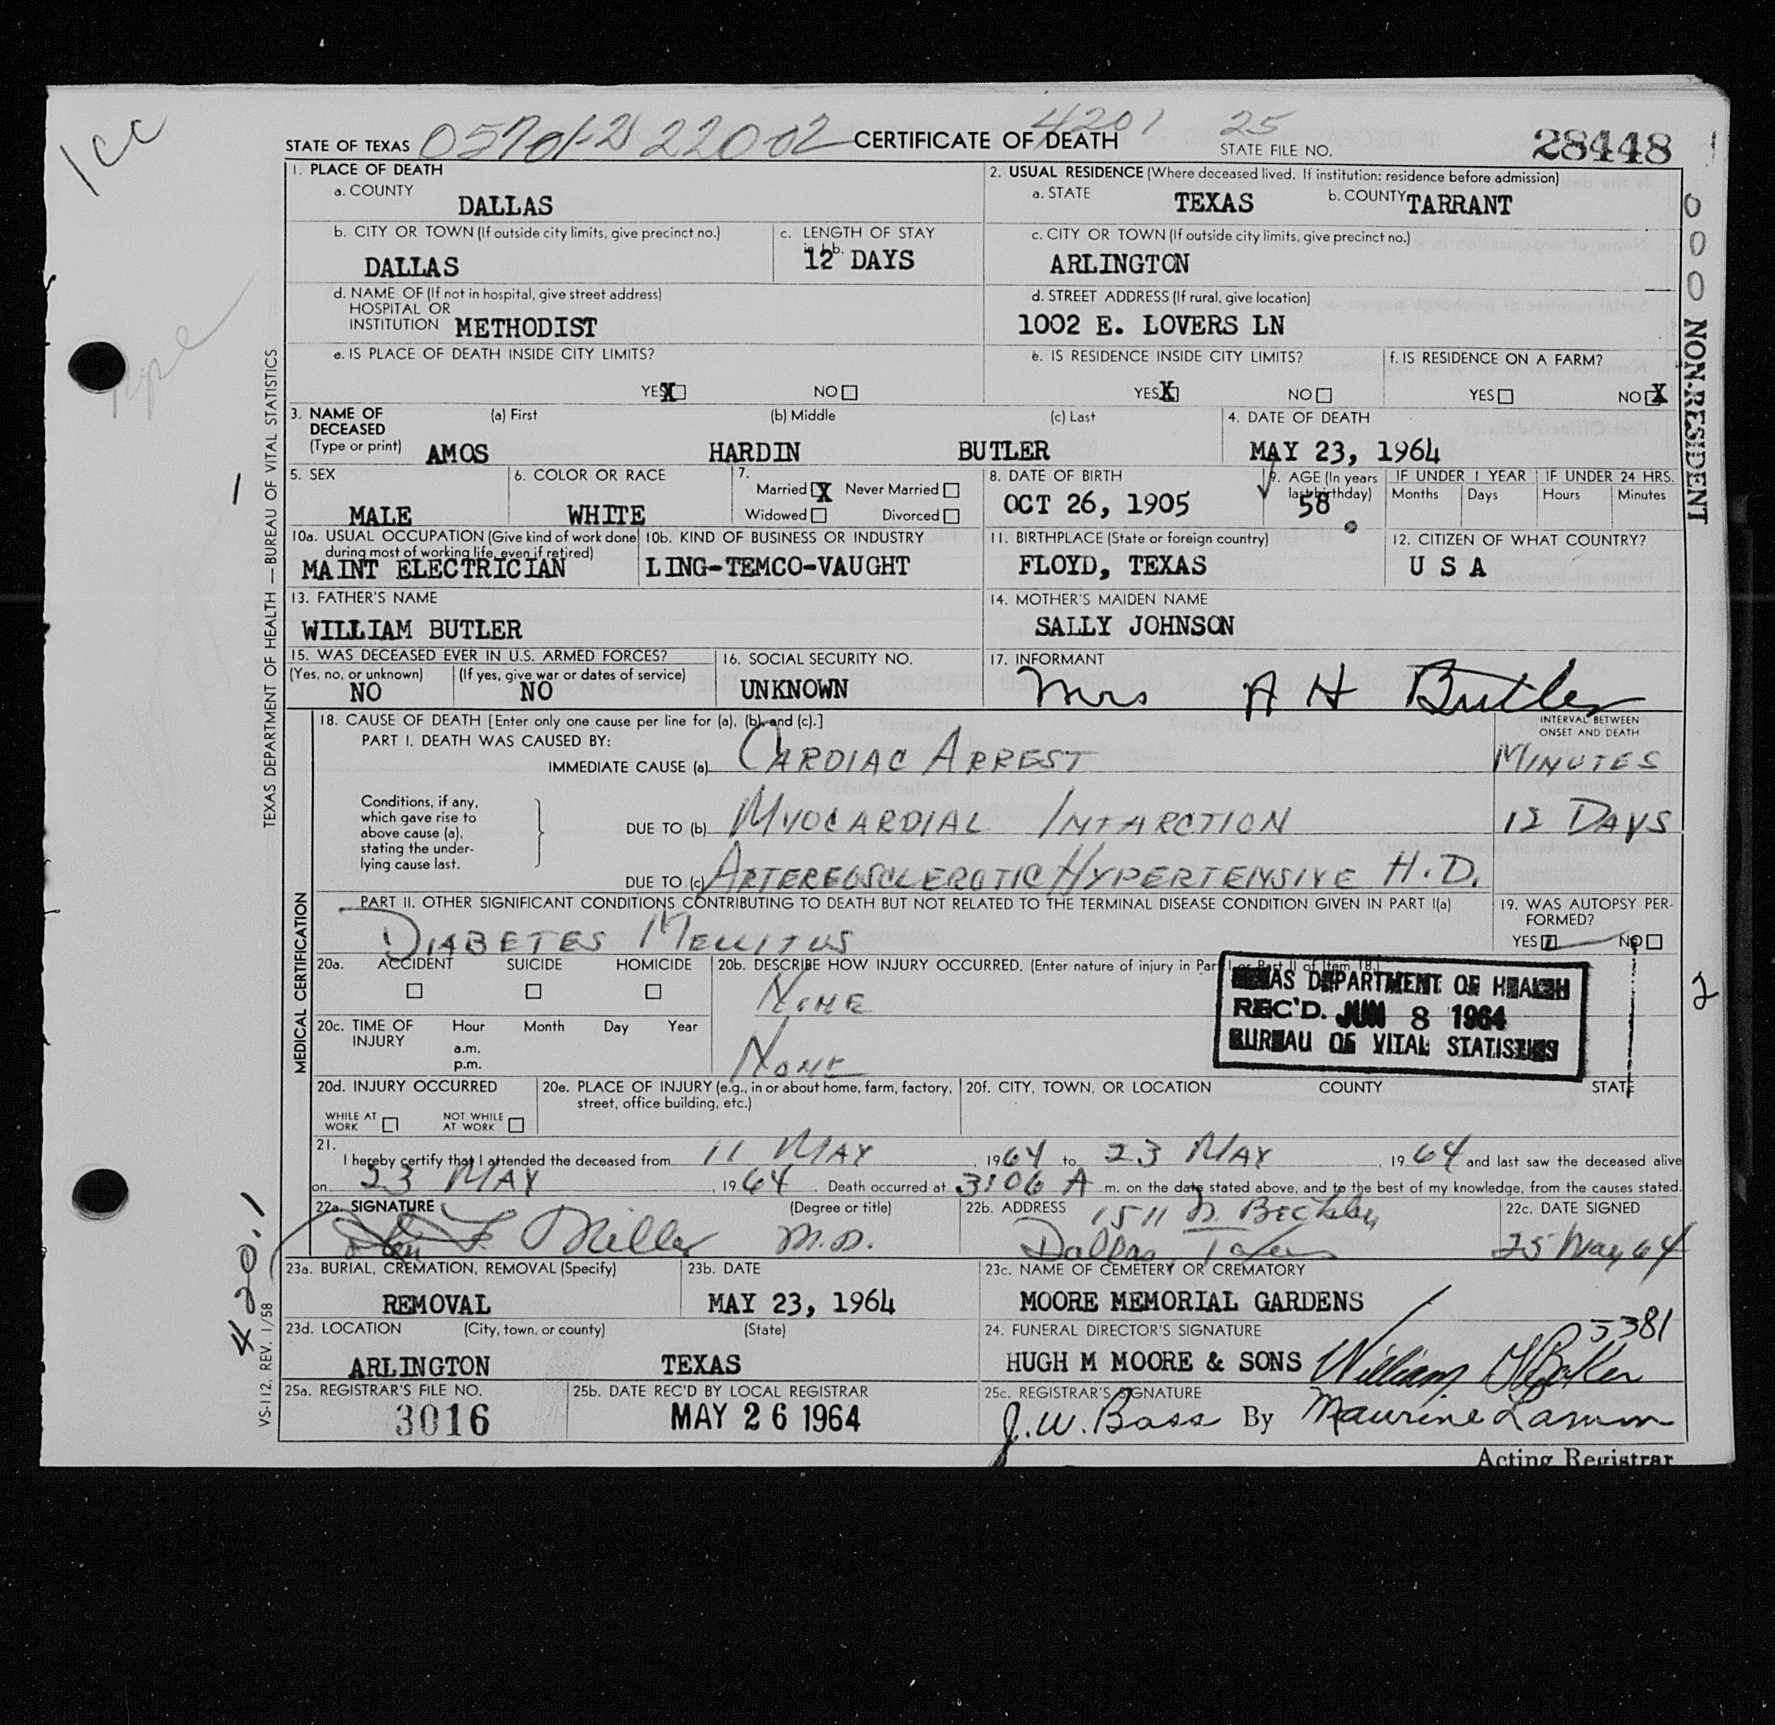 1cc
STATE OF TEXAS CERTIFICATE OF DEATH 4201 25 STATE FILE NO. 28448
1. PLACE OF DEATH
a. COUNTY DALLAS
2. USUAL RESIDENCE (Where deceased lived. If institution: residence before admission)
a. STATE TEXAS b. COUNTY TARRANT
b. CITY OR TOWN (If outside city limits, give precinct no.) DALLAS
c. LENGTH OF STAY in 1b. 12 DAYS
c. CITY OR TOWN (If outside city limits, give precinct no.) ARLINGTON
d. NAME OF (If not in hospital, give street address)
HOSPITAL OR
INSTITUTION METHODIST
d. STREET ADDRESS (If rural, give location)
1002 E. LOVERS LN
e. IS PLACE OF DEATH INSIDE CITY LIMITS?
YES X NO
e. IS RESIDENCE INSIDE CITY LIMITS?
YES X NO
f. IS RESIDENCE ON A FARM?
YES NO X
3. NAME OF DECEASED (Type or print)
(a) First (b) Middle (c) Last
AMOS HARDIN BUTLER
4. DATE OF DEATH
MAY 23, 1964
5. SEX
MALE
6. COLOR OR RACE
WHITE
7.
Married X Never Married
Widowed Divorced
8. DATE OF BIRTH
OCT 26, 1905
9. AGE (In years last birthday)
58
IF UNDER 1 YEAR
Months Days
IF UNDER 24 HRS.
Hours Minutes
10a. USUAL OCCUPATION (Give kind of work done during most of working life, even if retired)
MAINT ELECTRICIAN
10b. KIND OF BUSINESS OR INDUSTRY
LING-TEMCO-VAUGHT
11. BIRTHPLACE (State or foreign country)
FLOYD, TEXAS
12. CITIZEN OF WHAT COUNTRY?
U S A
13. FATHER'S NAME
WILLIAM BUTLER
14. MOTHER'S MAIDEN NAME
SALLY JOHNSON
15. WAS DECEASED EVER IN U.S. ARMED FORCES?
(Yes, no, or unknown) (If yes, give war or dates of service)
NO NO
16. SOCIAL SECURITY NO.
UNKNOWN
17. INFORMANT
Mrs A H Butler
18. CAUSE OF DEATH [Enter only one cause per line for (a), (b), and (c).]
PART I. DEATH WAS CAUSED BY:
IMMEDIATE CAUSE (a) CARDIAC ARREST
INTERVAL BETWEEN
ONSET AND DEATH
MINUTES
Conditions, if any,
which gave rise to
above cause (a),
stating the under-
lying cause last.
DUE TO (b) MYOCARDIAL INFARCTION 12 DAYS
DUE TO (c) ARTEREOSCLEROTIC HYPERTENSIVE H.D.
PART II. OTHER SIGNIFICANT CONDITIONS CONTRIBUTING TO DEATH BUT NOT RELATED TO THE TERMINAL DISEASE CONDITION GIVEN IN PART I(a)
DIABETES MELLITUS
19. WAS AUTOPSY PER-
FORMED?
YES NO
20a. ACCIDENT SUICIDE HOMICIDE
20b. DESCRIBE HOW INJURY OCCURRED. (Enter nature of injury in Part I or Part II of Item 18.)
NONE
TEXAS DEPARTMENT OF HEALTH
REC'D. JUN 8 1964
BUREAU OF VITAL STATISTICS
20c. TIME OF INJURY
Hour Month Day Year
a.m.
p.m.
NONE
20d. INJURY OCCURRED
WHILE AT WORK NOT WHILE AT WORK
20e. PLACE OF INJURY (e.g., in or about home, farm, factory,
street, office building, etc.)
20f. CITY, TOWN, OR LOCATION COUNTY STATE
21.
I hereby certify that I attended the deceased from 11 MAY, 1964 to 23 MAY, 1964 and last saw the deceased alive
on 23 MAY, 1964. Death occurred at 3:06 A m. on the date stated above, and to the best of my knowledge, from the causes stated.
22a. SIGNATURE (Degree or title)
Miller M.D.
22b. ADDRESS 1511 N. Beckley
Dallas, Texas
22c. DATE SIGNED
25 May 64
23a. BURIAL, CREMATION, REMOVAL (Specify)
REMOVAL
23b. DATE
MAY 23, 1964
23c. NAME OF CEMETERY OR CREMATORY
MOORE MEMORIAL GARDENS
23d. LOCATION (City, town, or county) (State)
ARLINGTON TEXAS
24. FUNERAL DIRECTOR'S SIGNATURE 5381
HUGH M MOORE & SONS William
25a. REGISTRAR'S FILE NO.
3016
25b. DATE REC'D BY LOCAL REGISTRAR
MAY 26 1964
25c. REGISTRAR'S SIGNATURE
J. W. Bass By Maurine Lamm
Acting Registrar
TEXAS DEPARTMENT OF HEALTH — BUREAU OF VITAL STATISTICS
MEDICAL CERTIFICATION
VS-112, REV. 1/58
420.1
000 NON-RESIDENT
2